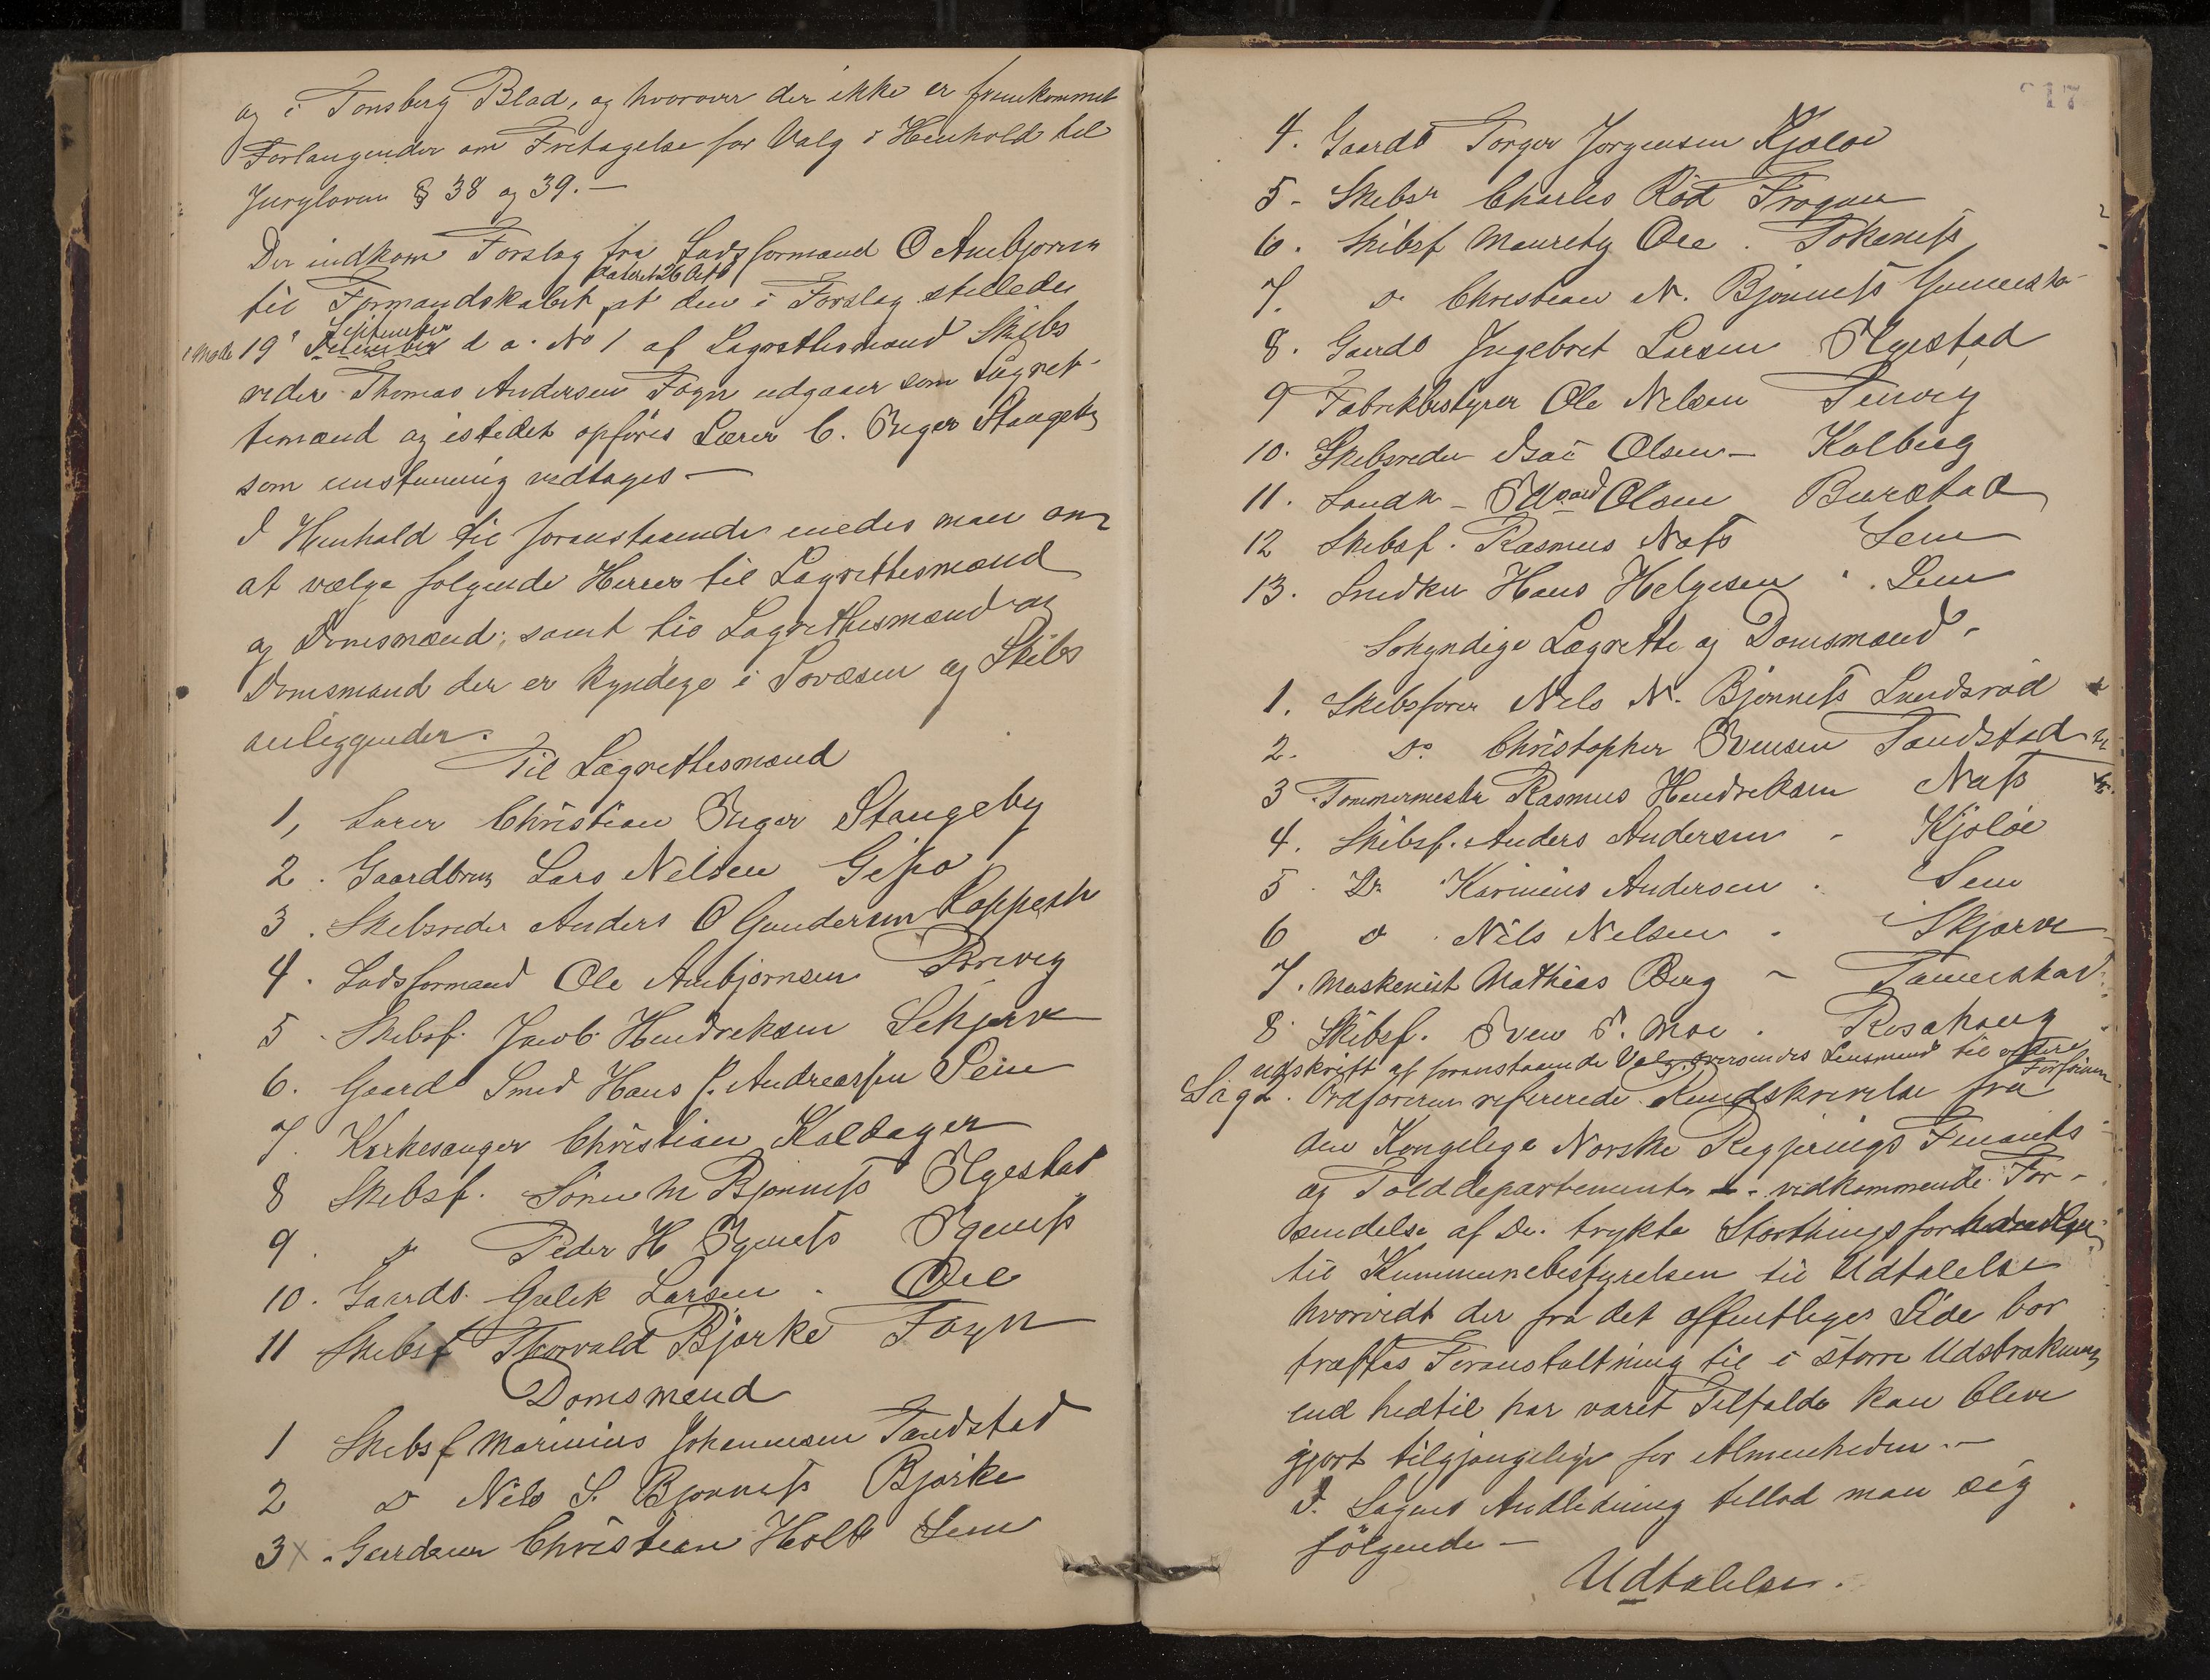 og i Tønsberg Blad, og hvorover der ikke er fremkommet
Forlangender om Fritagelse for Valg i Henhold til
Juryloven § 38 og 39. —
Der indkom Forslag fra Lodsformand O Anbjørnsen
dateret 26 Oktb
til Formandskabet at den i Forslag stilledes
September
i Møde 19de d a. No 1 af Lagrettesmænd Skibs
reder Thomas Andersen Føyn udgaaer som Lagret-
temænd og istedet opføres Lærer C. Unger Stangeby
som enstemmig vedtages —
I Henhold til foranstaaende enedes man om
at vælge følgende Herrer til Lagrettesmænd
og Domsmænd, samt til Lagrettesmænd og
Domsmænd der er kyndige i Søvæsen og Skibs
anliggender.
Til Lagrettesmænd
1, Lærer Christian Unger Stangeby
2. Gaardbrug Lars Nelsen Gipø
3. Skibsreder Anders O Gundersen
4. Lodsformand Ole Anbjørnsen Brevig
5 Skibsf. Jacob Hendreksen Schjerve
6. Gaard Smed Hans J. Andreassen Sem
7. Kirkesanger Christian Kaldager
8 Skibsf. Søren M Bjønness Elgestad
9. Do Peder H Ekeness Ekeness
10. Gaardb. Gulik Larsen. Øre
11 Skibsf Thorvald Bjørke Føyn
Domsmænd
1 Skibsf Marinius Johannesen Tandstad
2 Do Nils S. Bjønness Bjørke
3 x. Gardener Christian Holt Sem
217
4. Gaardb Torger Jørgensen Kjøløe
5 - Skibsr Charles Rød
6. Skibsf Mauritz Ore. Tokeness
7. Do Christian N. Bjønness
8. Gaardb Ingebret Larsen Elgestad
9 Fabrikbestyrer Ole Nelsen Tenvig
10. Skibsreder Isai Olsen — Kalberg
11. Landh - Edvard Olsen Buerstad
12 Skibsf. Rasmus Næss Sem
13. Snedker Hans Helgesen. Sem
Søkyndige Lagrette og Domsmænd -
1. Skibsfører Nils N. Bjønness Sundsrød
2. Do. Christopher Evensen Tandstad
3 Tømmermester Rasmus Hendreksen Næss
4. Skibsf. Anders Andersen - Kjøløe
5. Do Karinius Andersen. Sem
6 Do. Nils Nilsen. Skjærve
7. Maskenist Mathias Berg - Tømmerholt
8. Skibsf. Sven S. Moe. Rosahaug
Udskrift af foranstaaende Valg oversendes Lensmand til videre
Forføining
Sag 2. Ordføreren refererede Rundskrivelse fra
den Kongelige Norske Regjerings Finants
og Tolddepartement - vedkommende For-
sendelse af De. trykte Storthingsforhandlger
til Kummunebestyrelsen til Udtalelse
hvorvidt der fra det offentliges Side bør
træffes Foranstaltning til i større Udstrækning
end hidtil har været Tilfælde kan blive
gjort tilgjængelige for Almenheden. —
I Sagens Andledning tillod man sig
følgende —
Udtalelse.